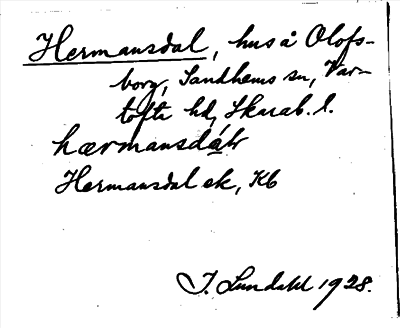 Hermansdal, hus å Olofs-
borg, Sandhems sn, Var-
tofta hd, Skarab. l.
hærmansdáɫv
Hermansdal ek, Kb
I. Lundahl 1928.